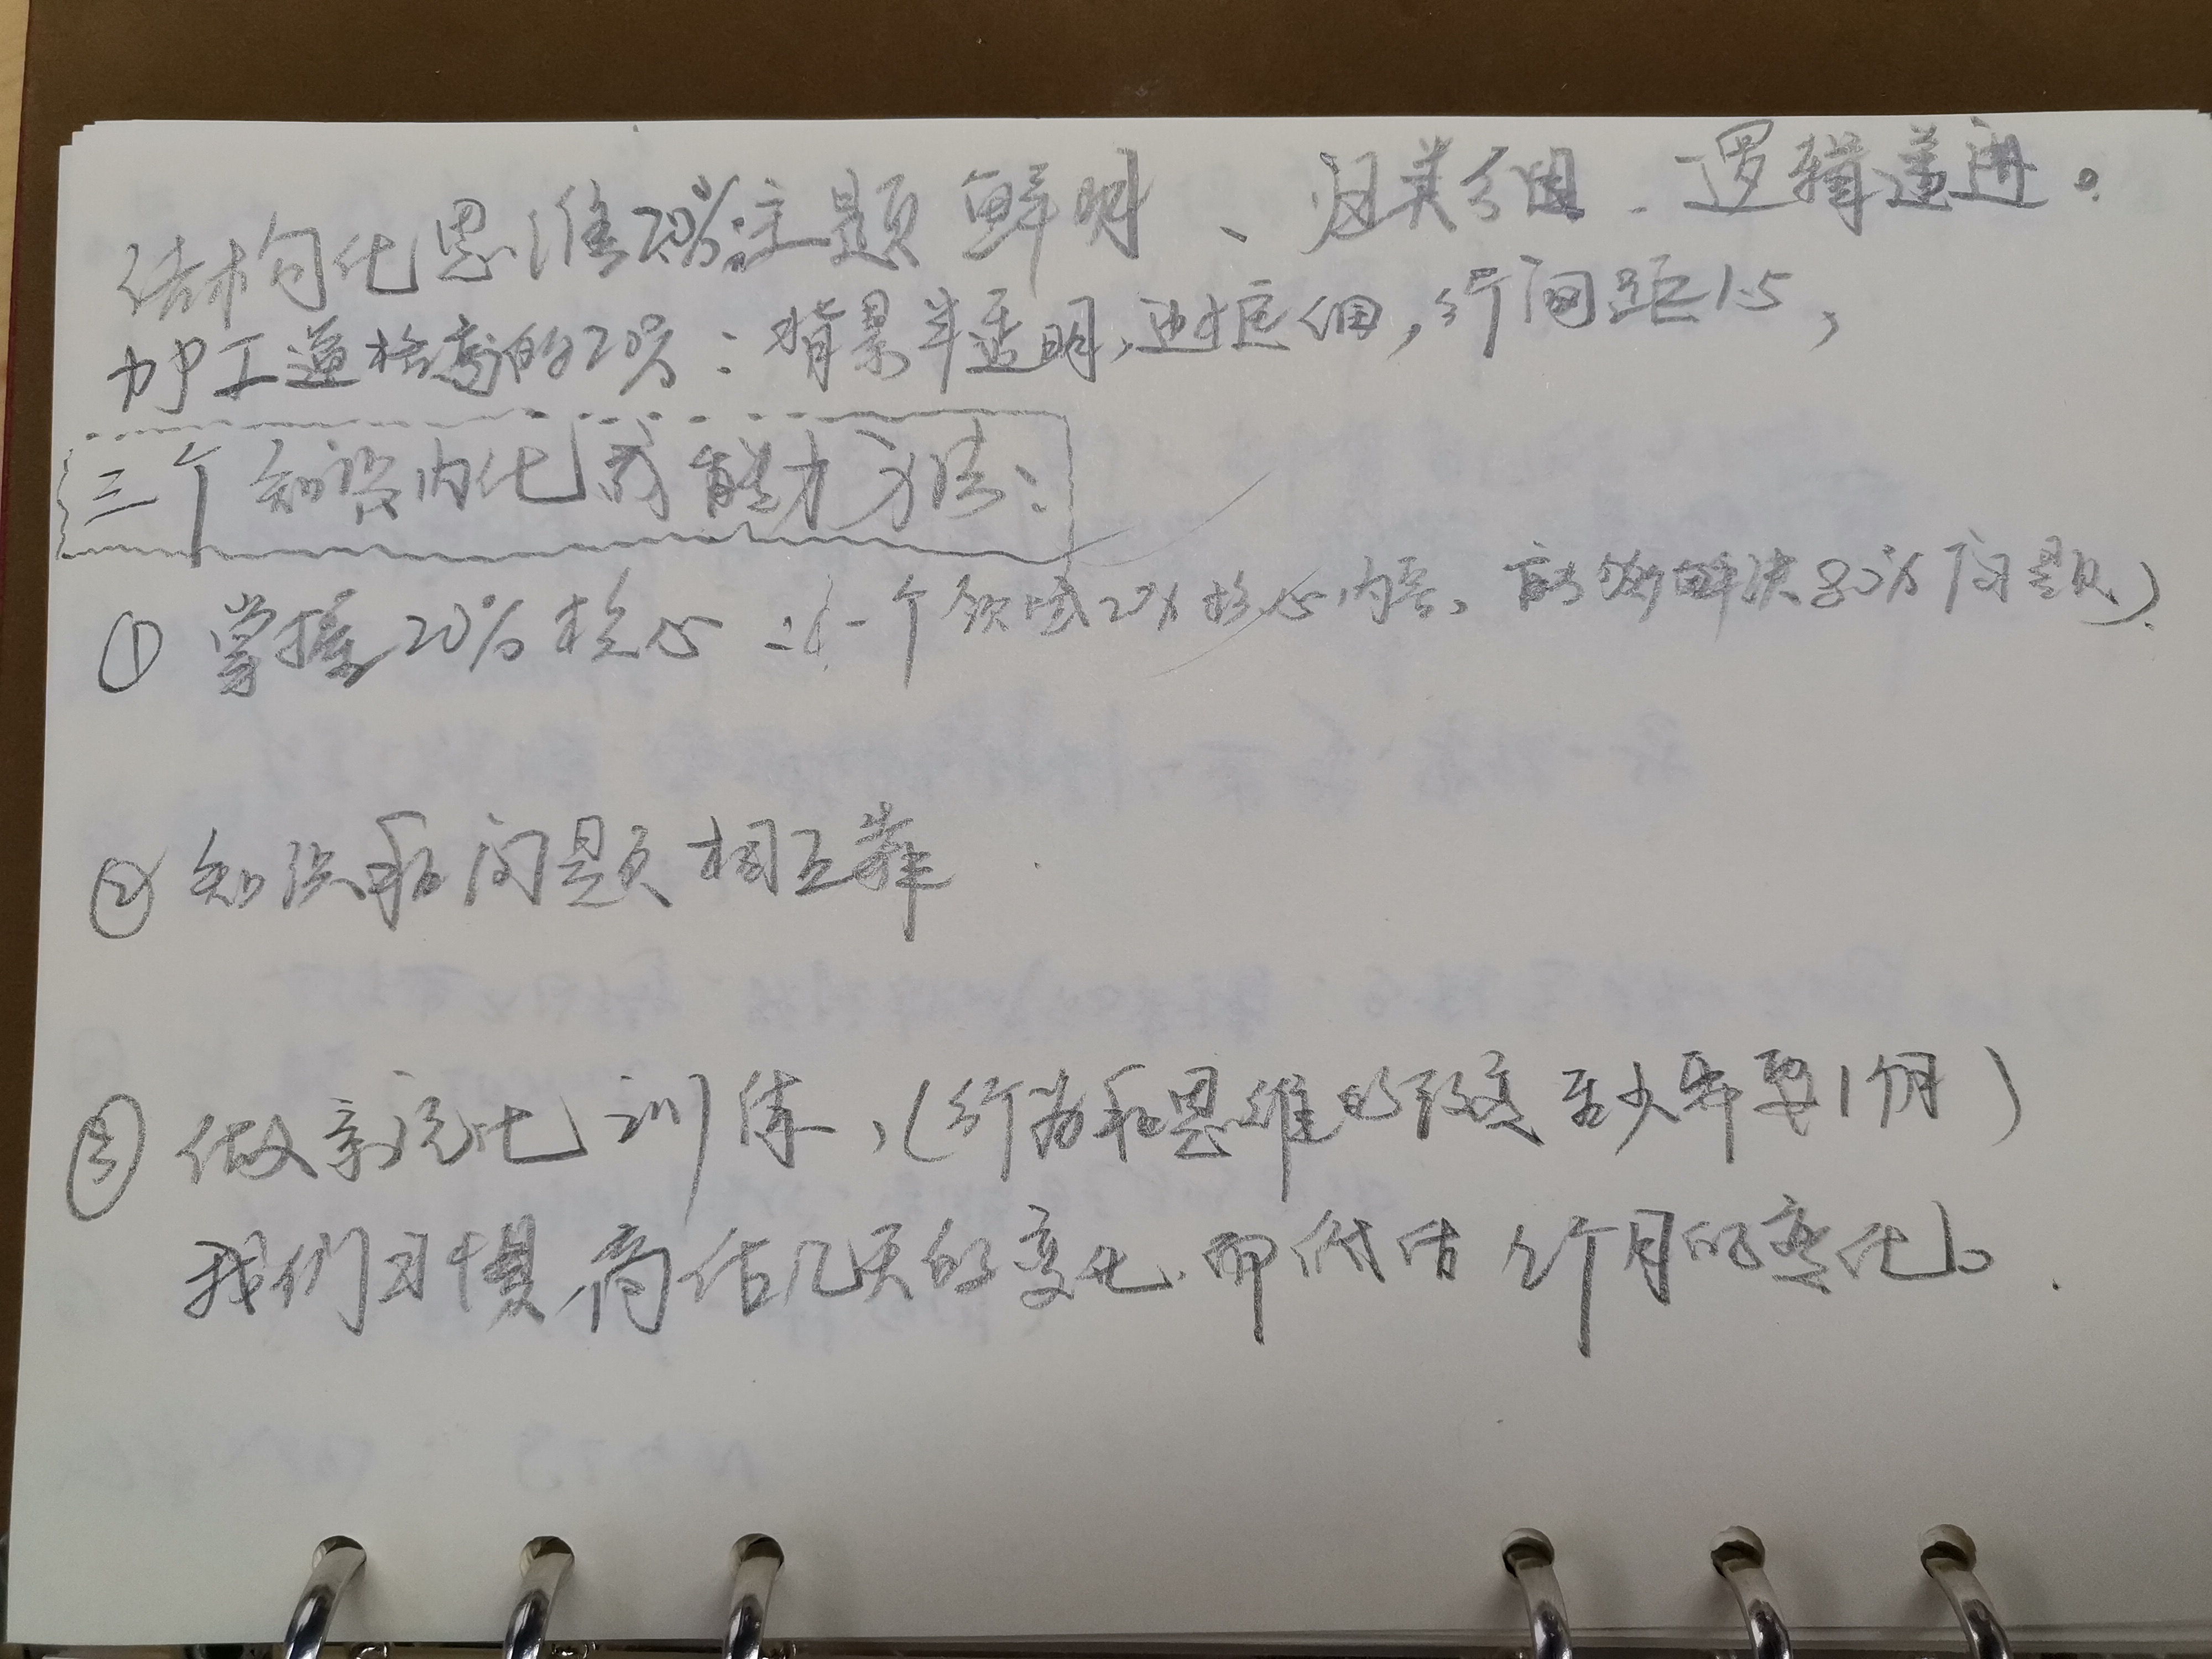 结构化思维20%:主题鲜明、归类分组、逻辑递进。
加工逼格高的20%:背景半透明,边框细,行间距1.5,
三个知识内化成能力方法:
① 掌握20%核心:(一个领域20%核心内容,能解决80%问题)
② 知识和问题相互靠
③ 做系统化训练,(行为和思维的改变至少需要1个月)
我们习惯高估几天的变化,而低估几个月的变化。